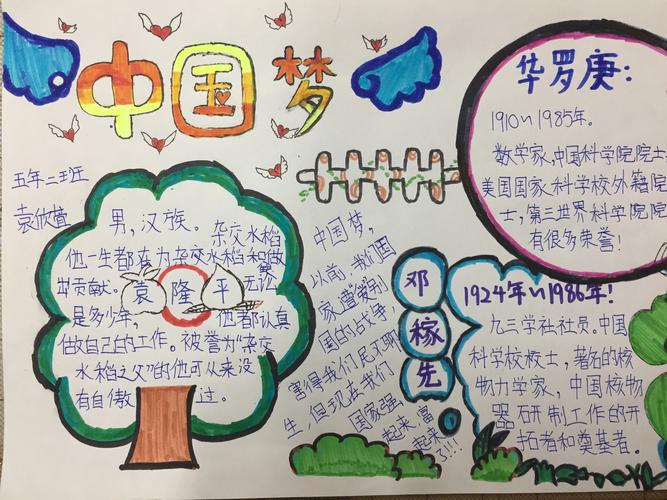 中国梦
五年二班
男,汉族。杂交水稻
他一生都在为杂交水稻和做
出贡献。袁隆平 无论
是多少年, 他都认真
做自己的工作。被誉为“杂交
水稻之父”的他可从来没
有自傲过。
中国梦,
以前,我们国
家遭受别
国的战争
害得我们民不聊
生,但现在我们
国家强
起来,富
起来了!!!
华罗庚:
1910~1985年。
数学家、中国科学院院士
美国国家科学校外籍院
士,第三世界科学院院
有很多荣誉!
邓稼先
1924年~1986年!
九三学社社员。中国
科学校校士,著名的核
物力学家,中国核物
器研制工作的开
拓者和奠基者。